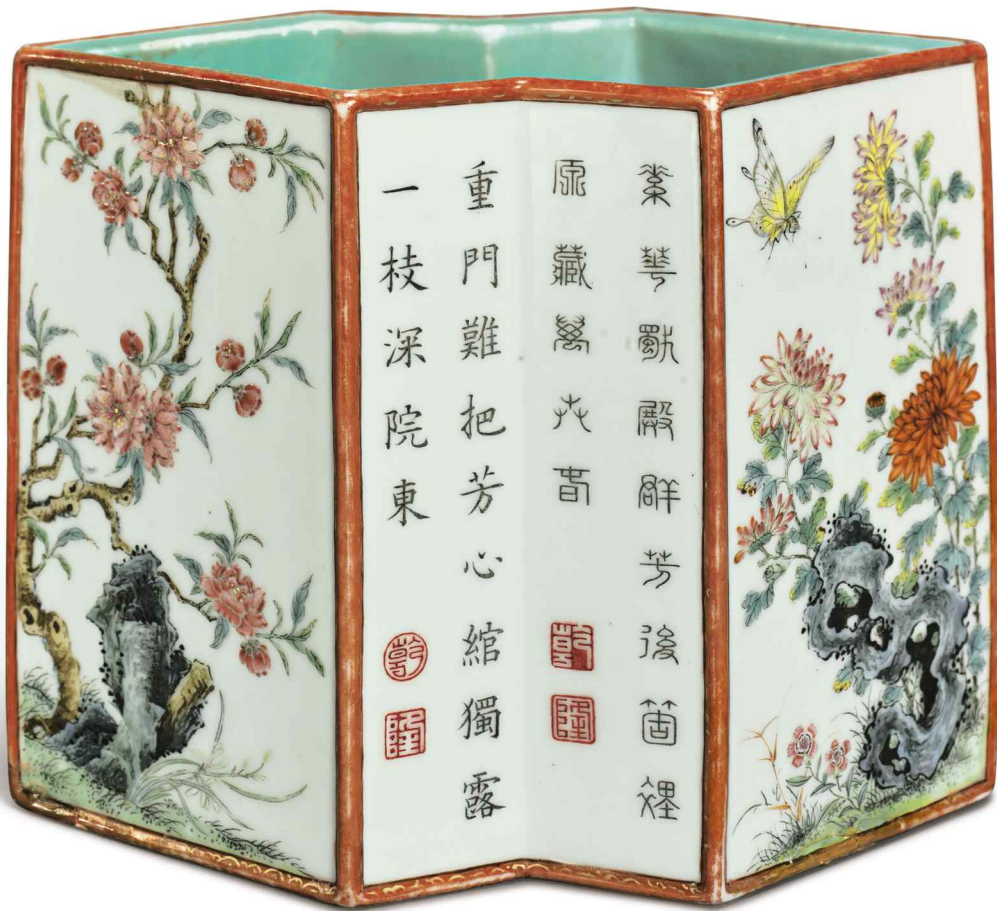 素華獨殿群芳後箇裡
原藏萬春
乾
隆
重門難把芳心綰獨露
一枝深院東
乾
隆